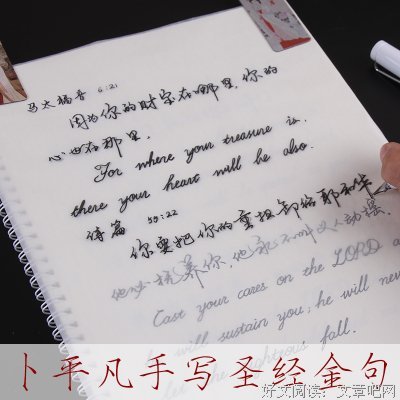 马太福音 6:21
因为你的财宝在哪里,你的
心也在那里.
For where your treasure is,
there your heart will be also.
诗篇 55:22
你要把你的重担卸给耶和华
他必抚养你,他永不叫义人动摇.
Cast your cares on the LORD a
will sustain you; he will nev
righteous fall.
卜平凡手写圣经金句
好文阅读:文章吧网